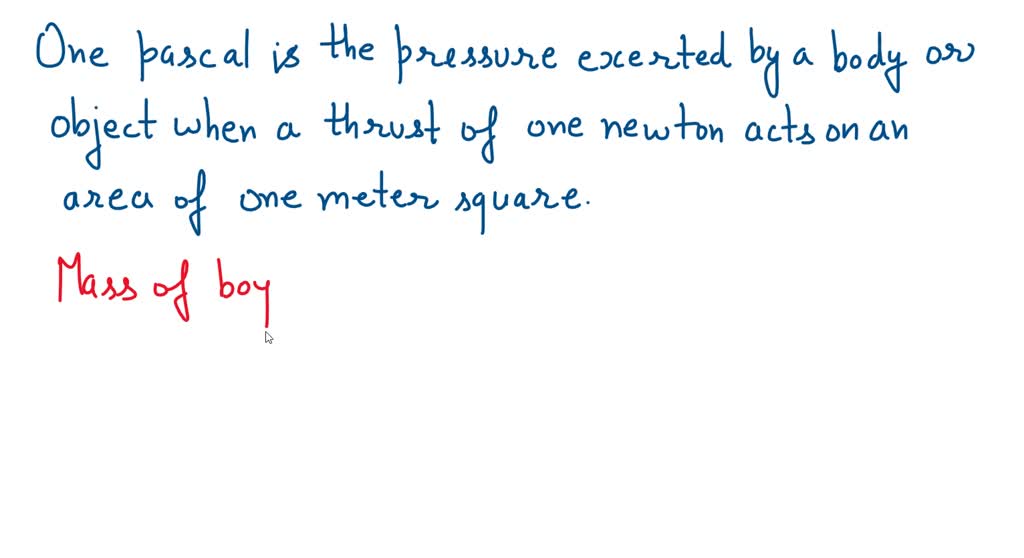 One pascal is the pressure exerted by a body or
object when a thrust of one newton acts on an
area of one meter square.
Mass of boy